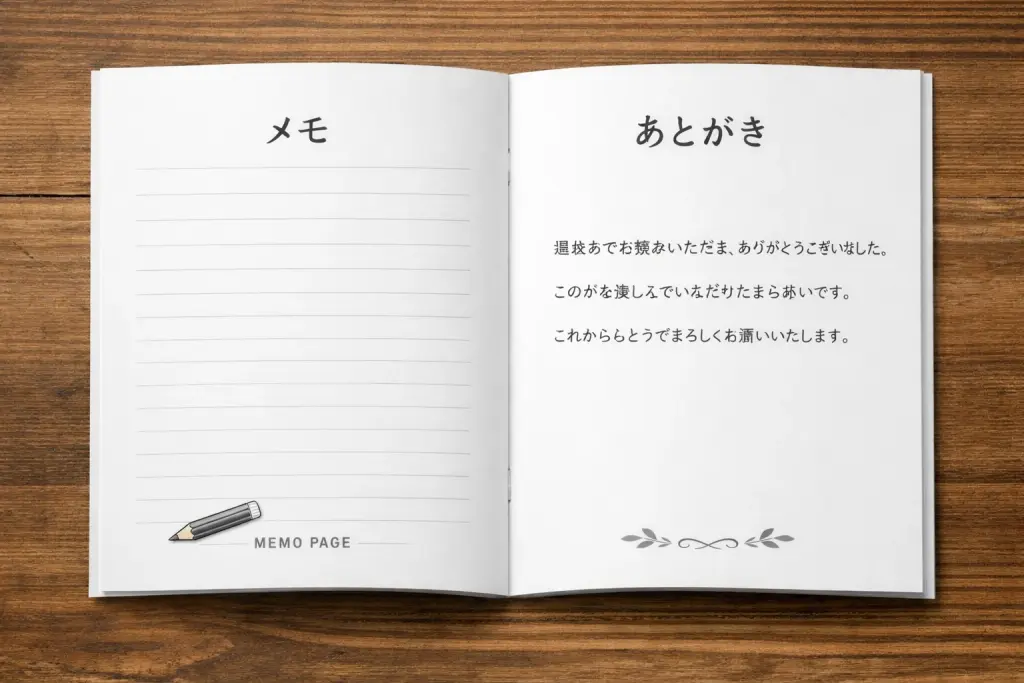 メモ
MEMO PAGE
あとがき
いただま、ありがとうございました。
このがを しんでいなだりたまらあいです。
これかららとうでまろしくお いいたします。